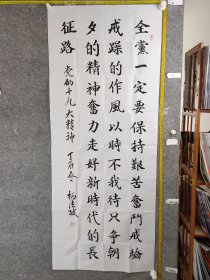 全黨一定要保持艱苦奮鬥戒驕
戒躁的作風以時不我待只爭朝
夕的精神奮力走好新時代的長
征路 党的十九大精神 丁酉冬